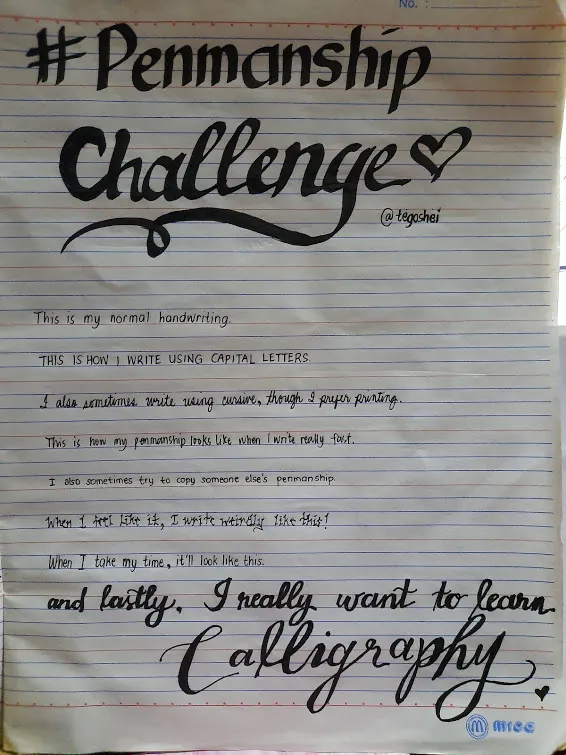 No. :
#Penmanship
Challenge♥
@tegashei
This is my normal handwriting.
THIS IS HOW I WRITE USING CAPITAL LETTERS.
I also sometimes write using cursive, though I prefer printing.
This is how my penmanship looks like when I write really fast.
I also sometimes try to copy someone else's penmanship.
When I feel like it, I write weirdly like this!
When I take my time, it'll look like this.
and lastly, I really want to learn
Calligraphy